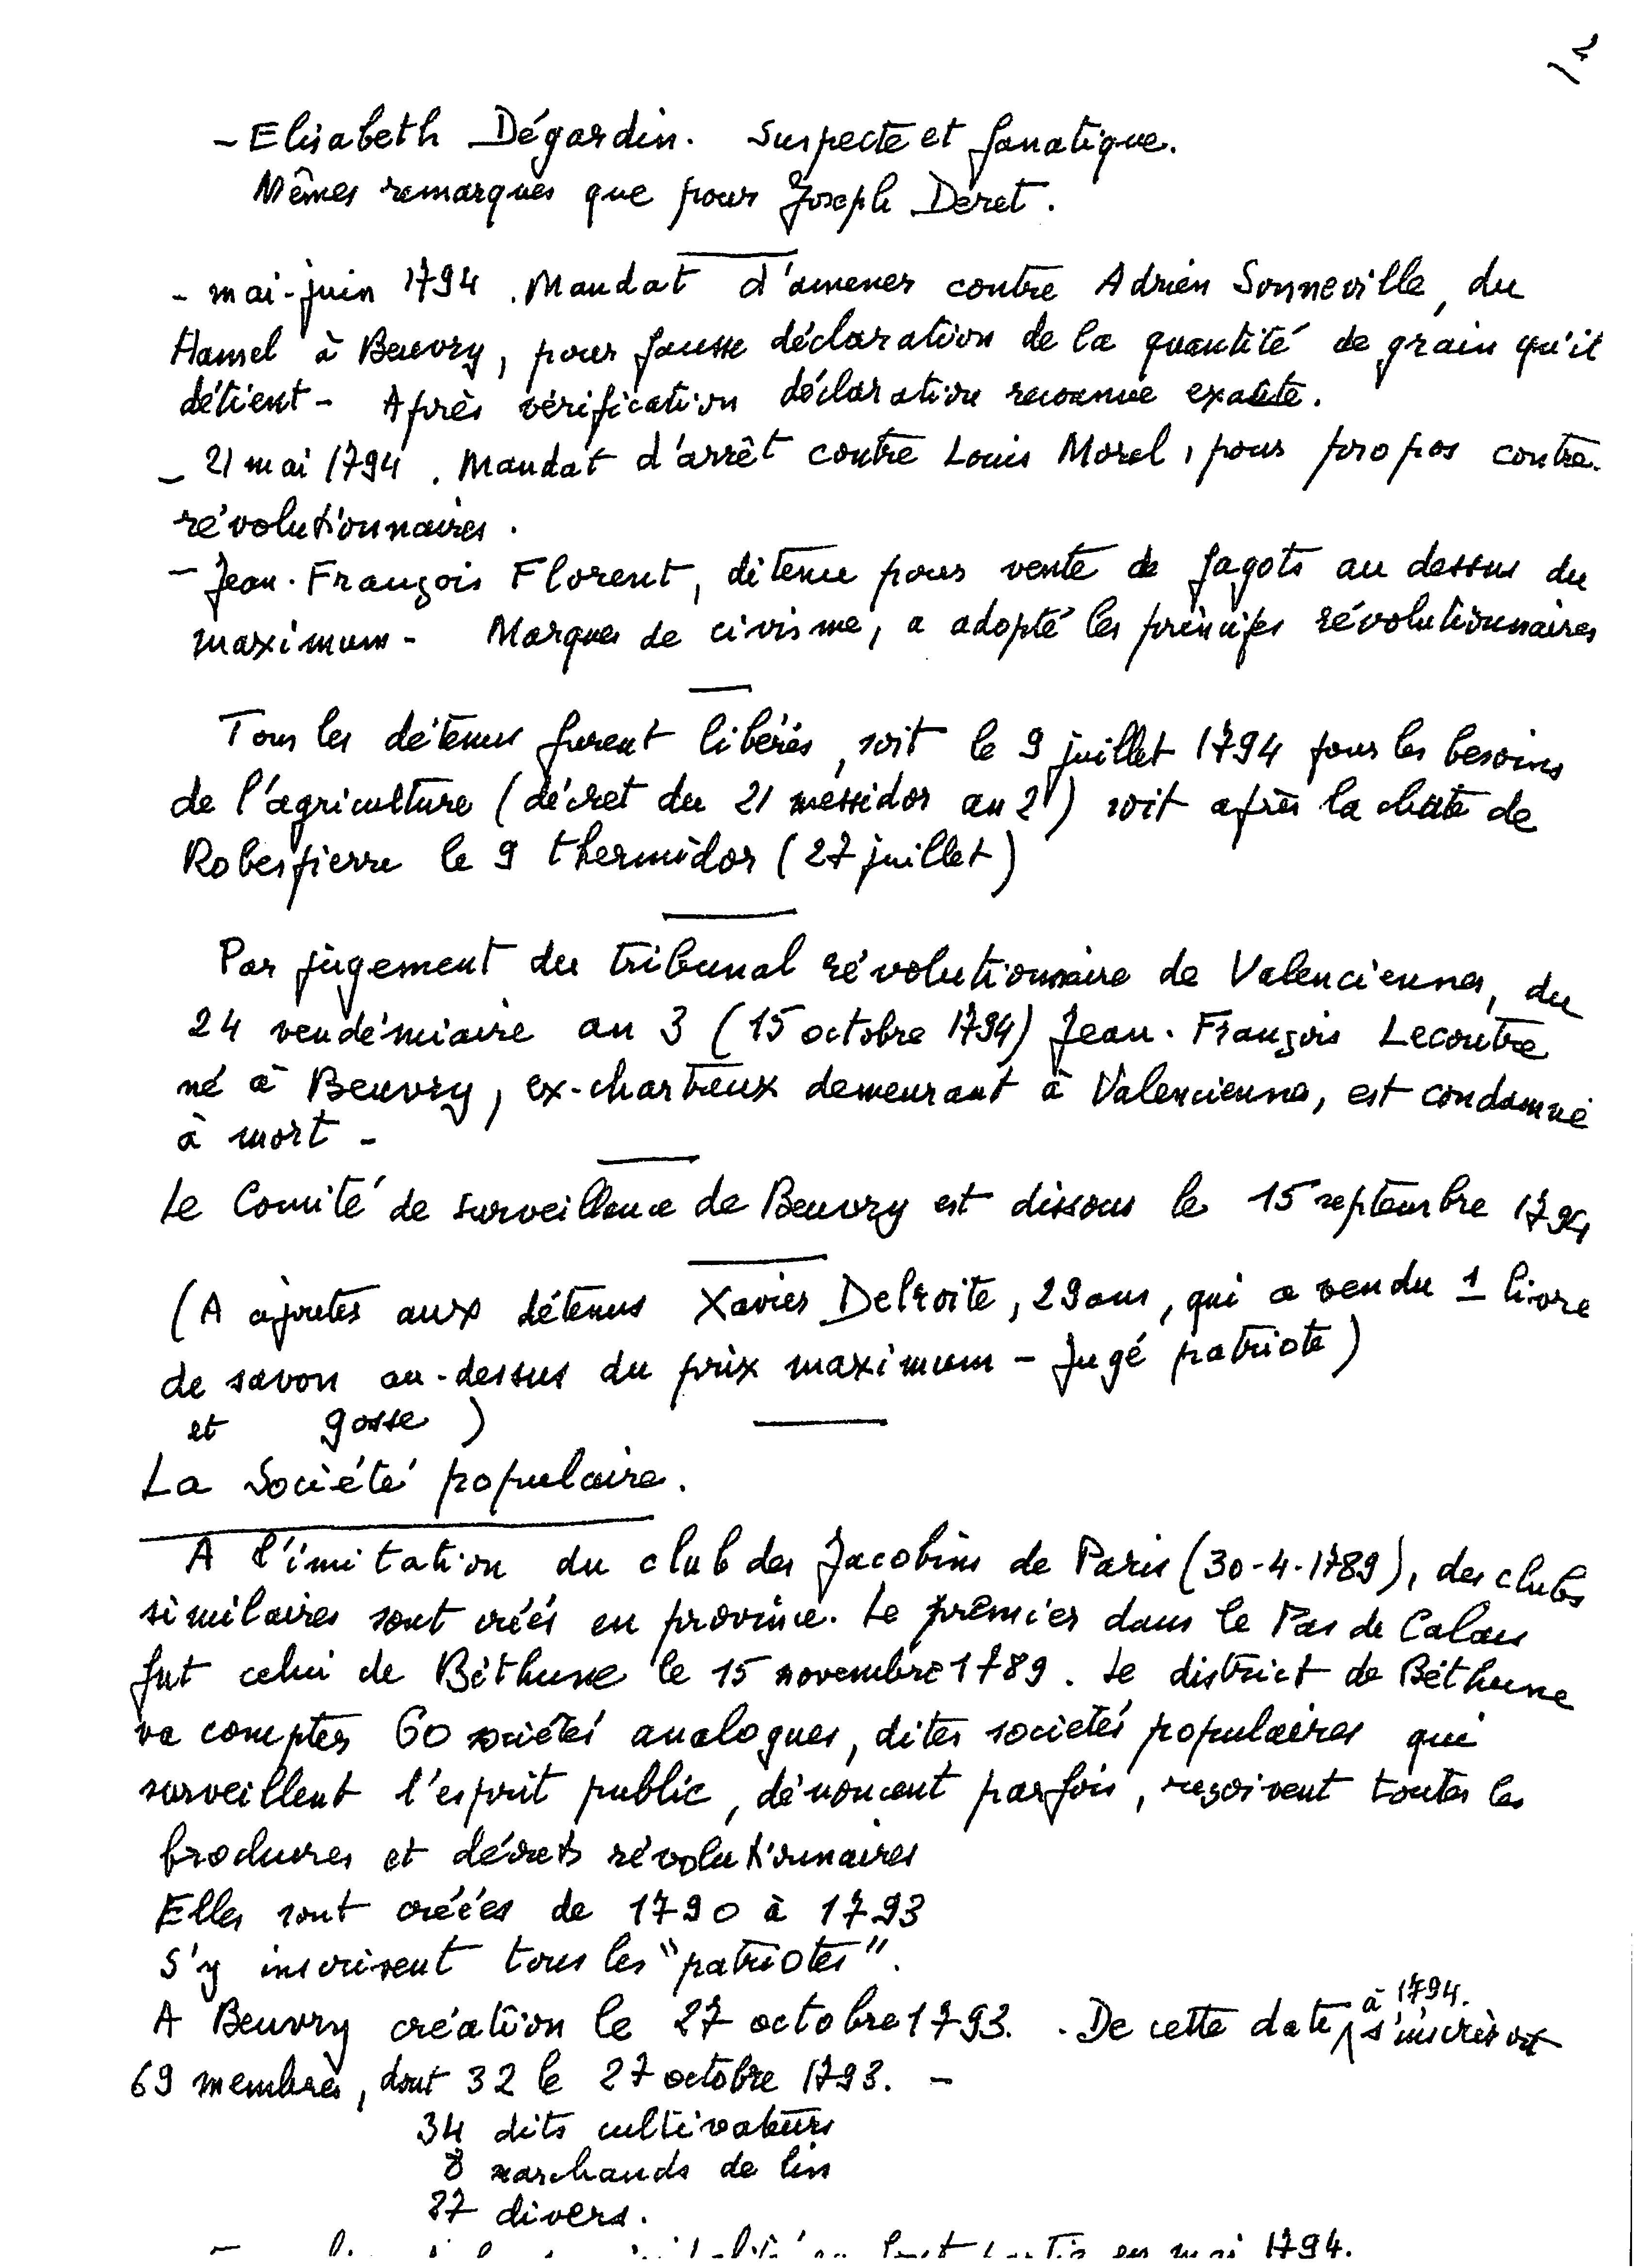 - Elisabeth Dégardin. Suspecte et fanatique.
Mêmes remarques que pour Joseph Déret.
- mai-juin 1794. Mandat d'amener contre Adrien Sonneville, du
Hamel à Beuvry, pour fausse déclaration de la quantité de grain qu'il
détient - Après vérification déclaration reconnue exacte.
- 21 mai 1794. Mandat d'arrêt contre Louis Morel, pour propos contre-
révolutionnaires.
- Jean-François Florent, détenu pour vente de fagots au dessus du
maximum - Marques de civisme, a adopté les principes révolutionnaires
Tous les détenus furent libérés, soit le 9 juillet 1794 pour les besoins
de l'agriculture (décret du 21 messidor an 2) soit après la chute de
Robespierre le 9 thermidor (27 juillet)
Par jugement du tribunal révolutionnaire de Valenciennes, du
24 vendémiaire an 3 (15 octobre 1794) Jean-François Lecoutre
né à Beuvry, ex-chartreux demeurant à Valenciennes, est condamné
à mort -
Le Comité de surveillance de Beuvry est dissous le 15 septembre 1794
(A ajouter aux détenus Xavier Delroite, 29 ans, qui a vendu 1 livre
de savon au-dessus du prix maximum - Jugé patriote)
et gosse )
La Société populaire.
A l'imitation du club des Jacobins de Paris (30-4-1789), des clubs
similaires sont créés en province. Le premier dans le Pas de Calais
fut celui de Béthune le 15 novembre 1789. Le district de Béthune
va compter 60 sociétés analogues, dites sociétés populaires qui
surveillent l'esprit public, dénoncent parfois, reçoivent toutes les
brochures et décrets révolutionnaires
Elles sont créées de 1790 à 1793
S'y inscrivent tous les "patriotes".
A Beuvry création le 27 octobre 1793. . De cette date à 1794. s'inscrivent
69 membres, dont 32 le 27 octobre 1793. -
34 dits cultivateurs
8 marchands de lin
27 divers.
en mai 1794.